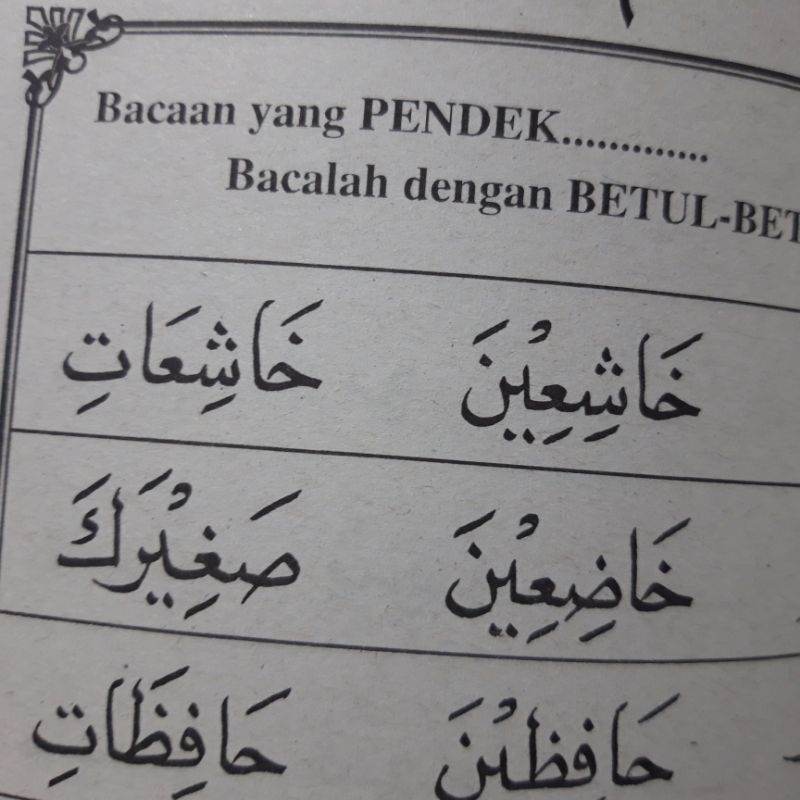 Bacaan yang PENDEK.............
Bacalah dengan BETUL-BET
خَاشِعِيْنَ خَاشِعَاتِ
خَاضِعِيْنَ صَغِيْرَكَ
حَافِظِيْنَ حَافِظَاتِ